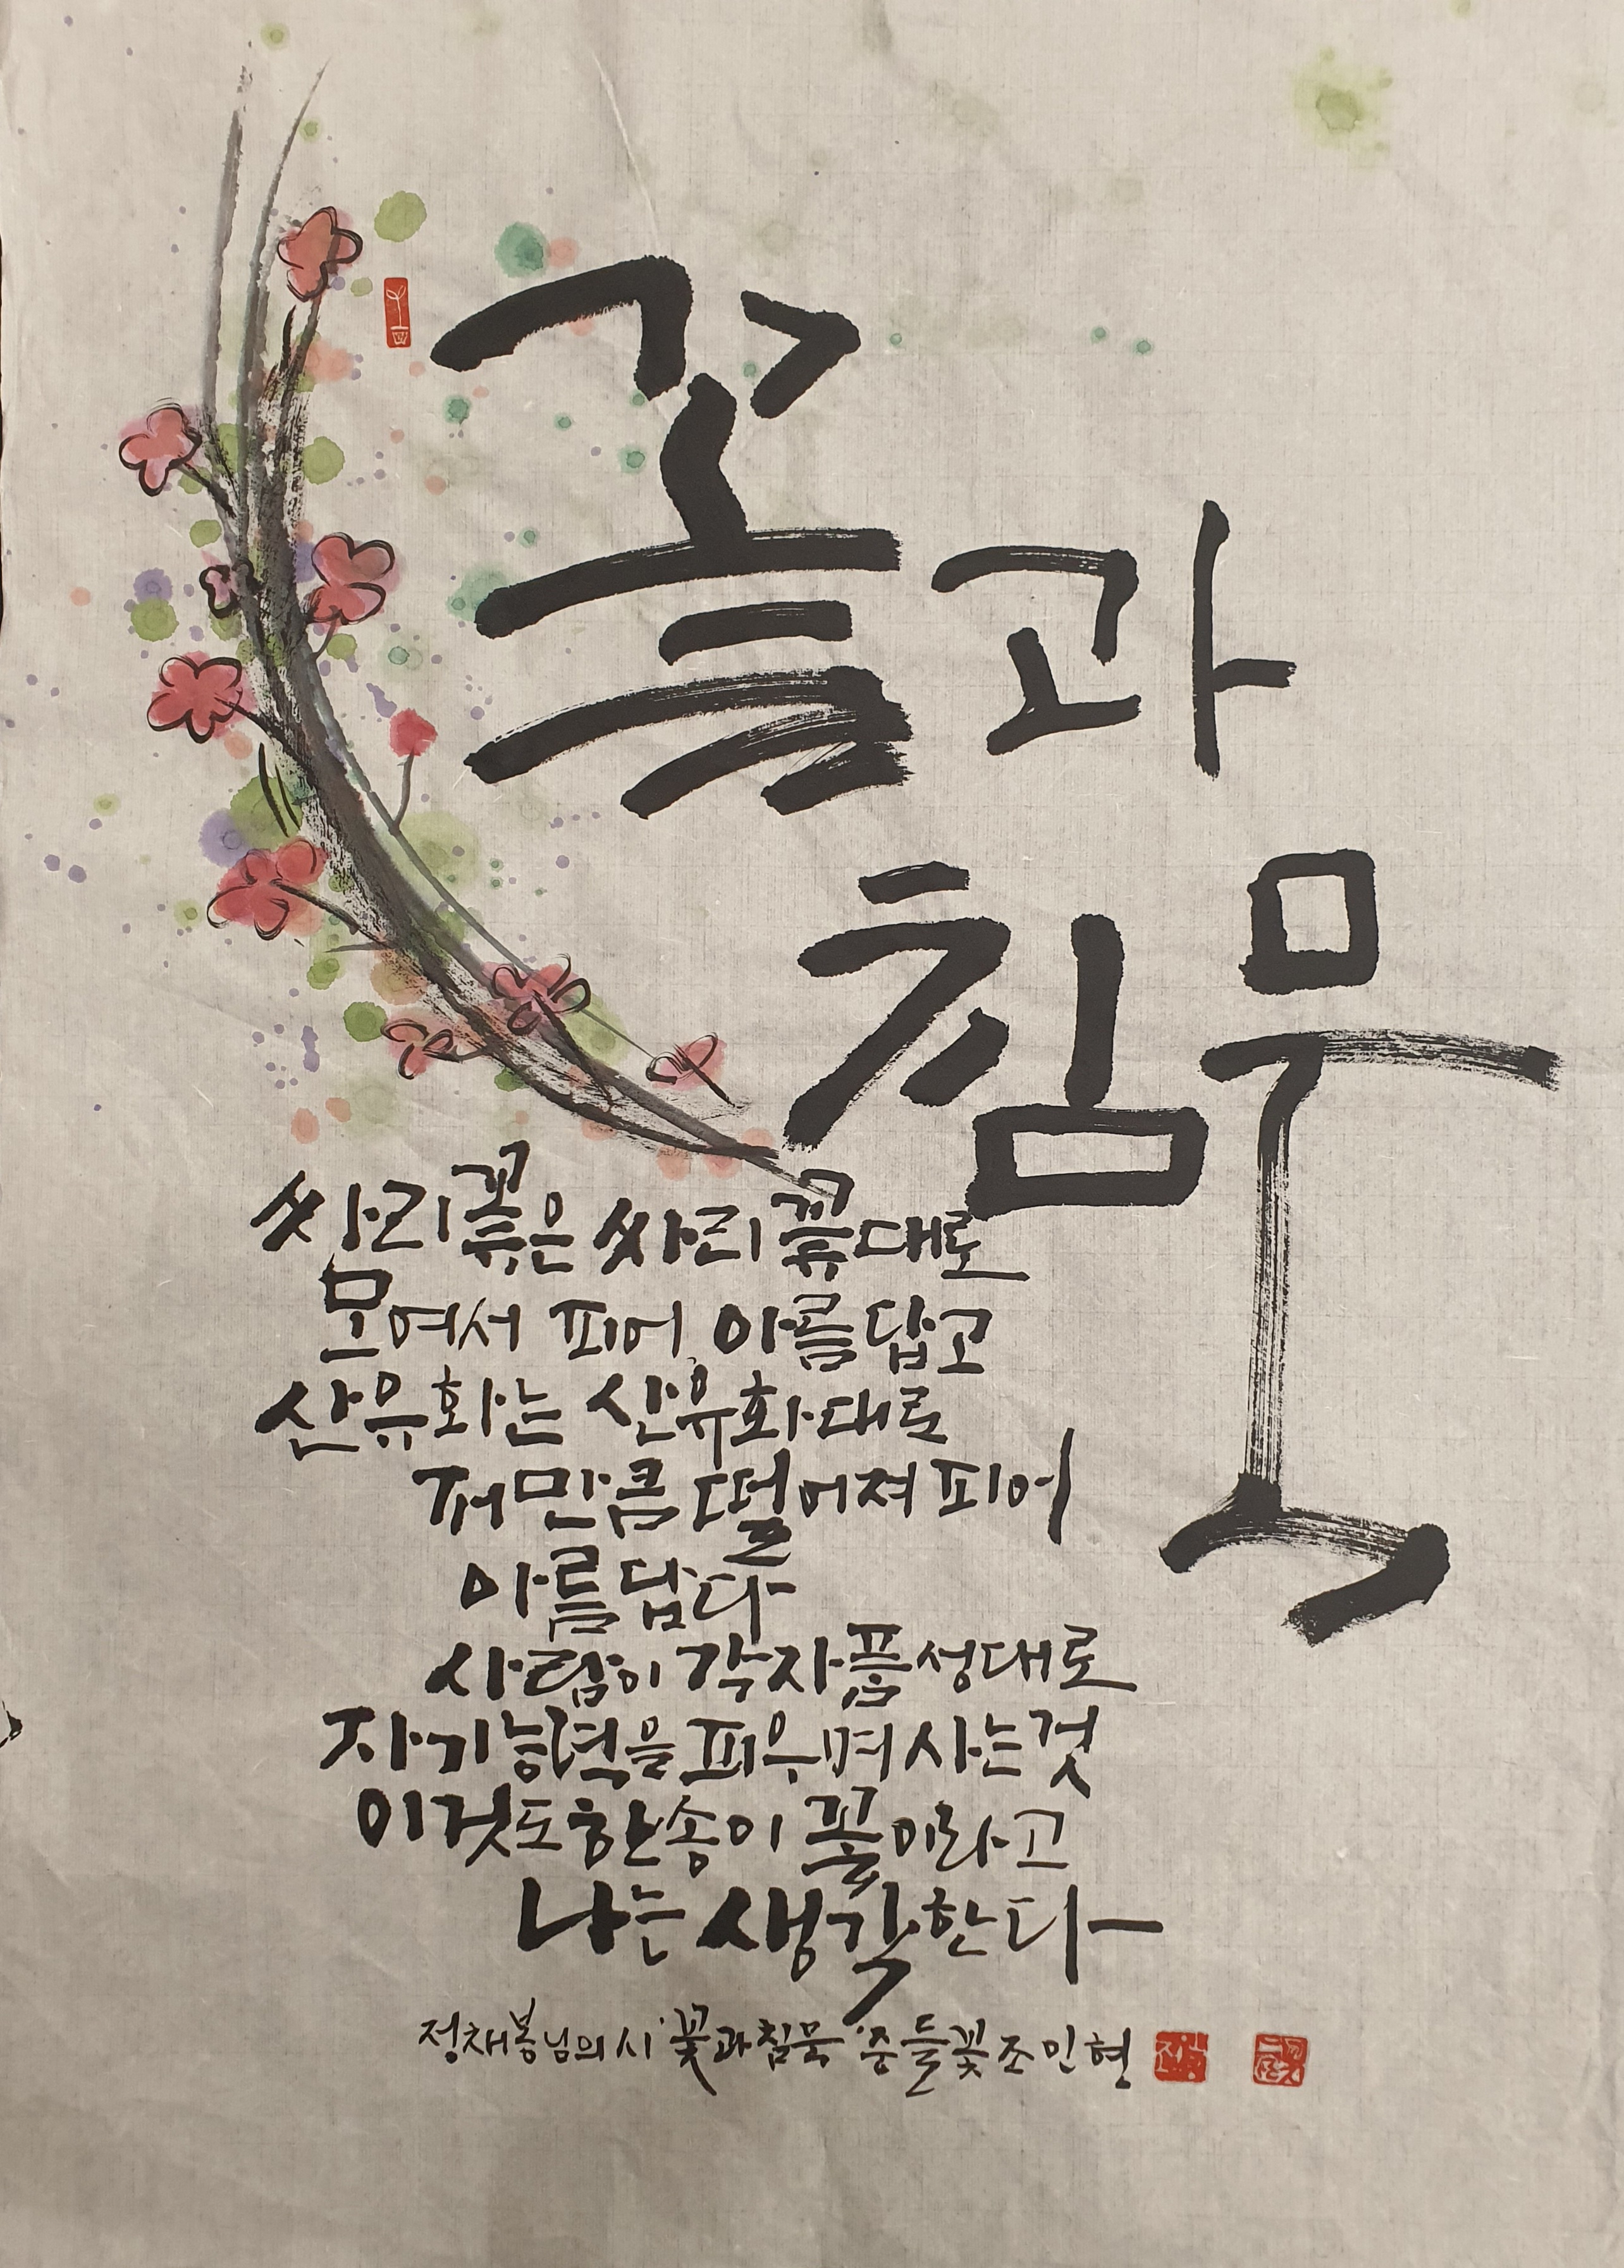 꽃과
침묵
싸리꽃은 싸리꽃대로
모여서 피어 아름답고
산유화는 산유화대로
저만큼 떨어져 피어
아름답다
사람이 각자 품성대로
자기 능력을 피우며 사는 것
이것도 한 송이 꽃이라고
나는 생각한다
정채봉님의 시 '꽃과 침묵' 중 들꽃 조민형